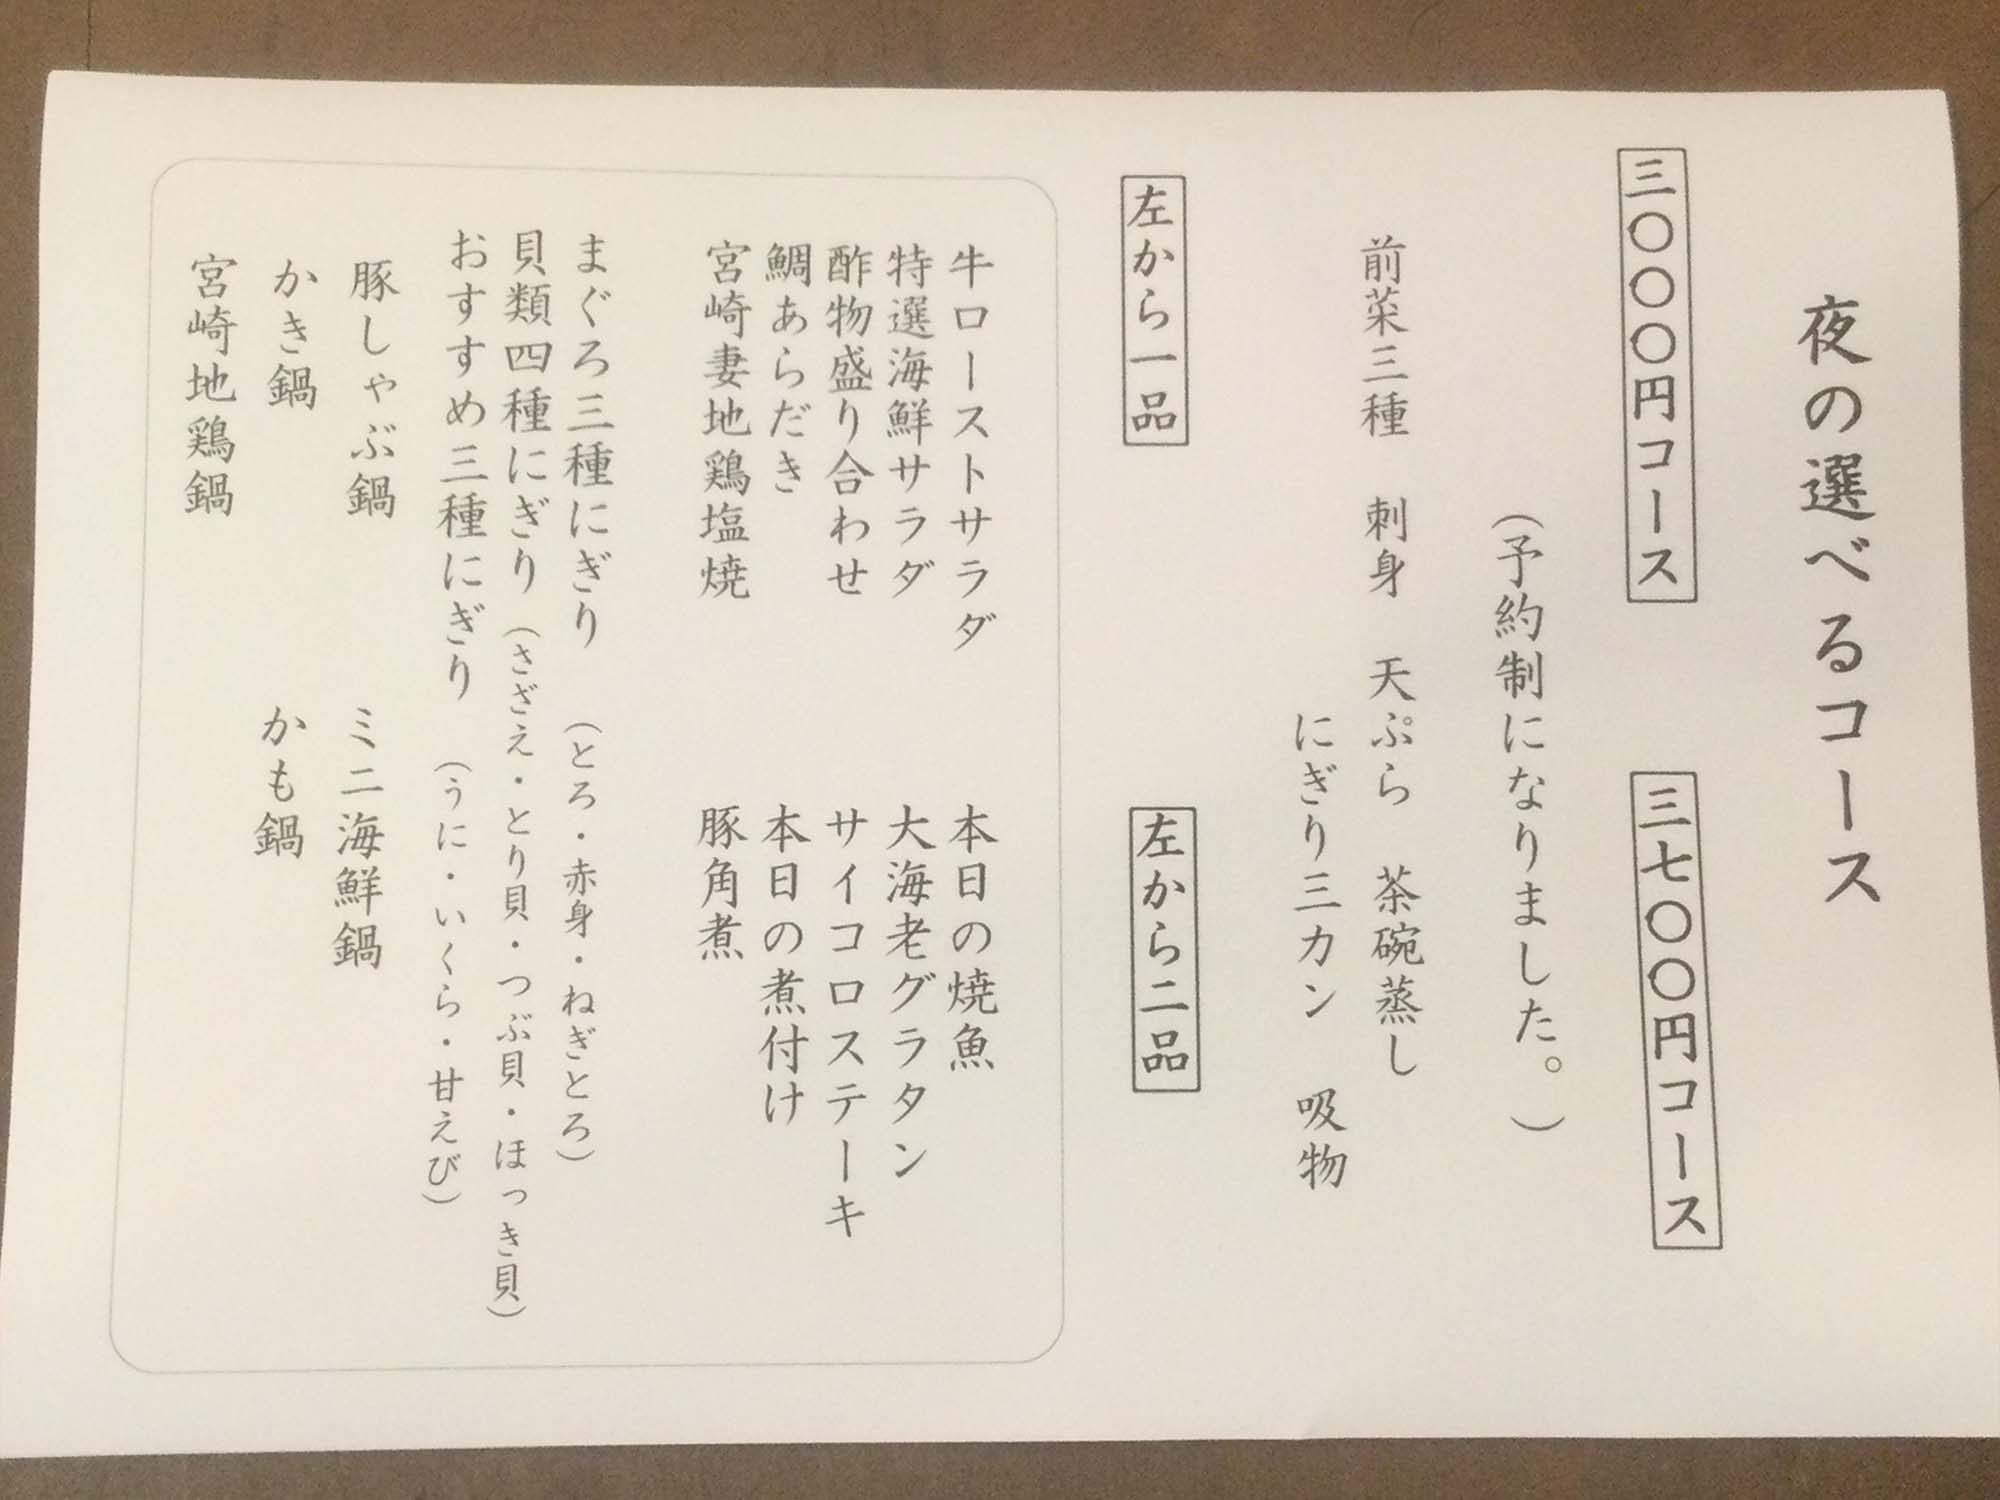 夜の選べるコース
三〇〇〇円コース
三七〇〇円コース
(予約制になりました。)
前菜三種　刺身　天ぷら　茶碗蒸し
にぎり三カン　吸物
左から一品
左から二品
牛ローストサラダ　本日の焼魚
特選海鮮サラダ　大海老グラタン
酢物盛り合わせ　サイコロステーキ
鯛あらだき　本日の煮付け
宮崎妻地鶏塩焼　豚角煮
まぐろ三種にぎり　(とろ・赤身・ねぎとろ)
貝類四種にぎり　(さざえ・とり貝・つぶ貝・ほっき貝)
おすすめ三種にぎり　(うに・いくら・甘えび)
豚しゃぶ鍋　ミニ海鮮鍋
かき鍋　かも鍋
宮崎地鶏鍋